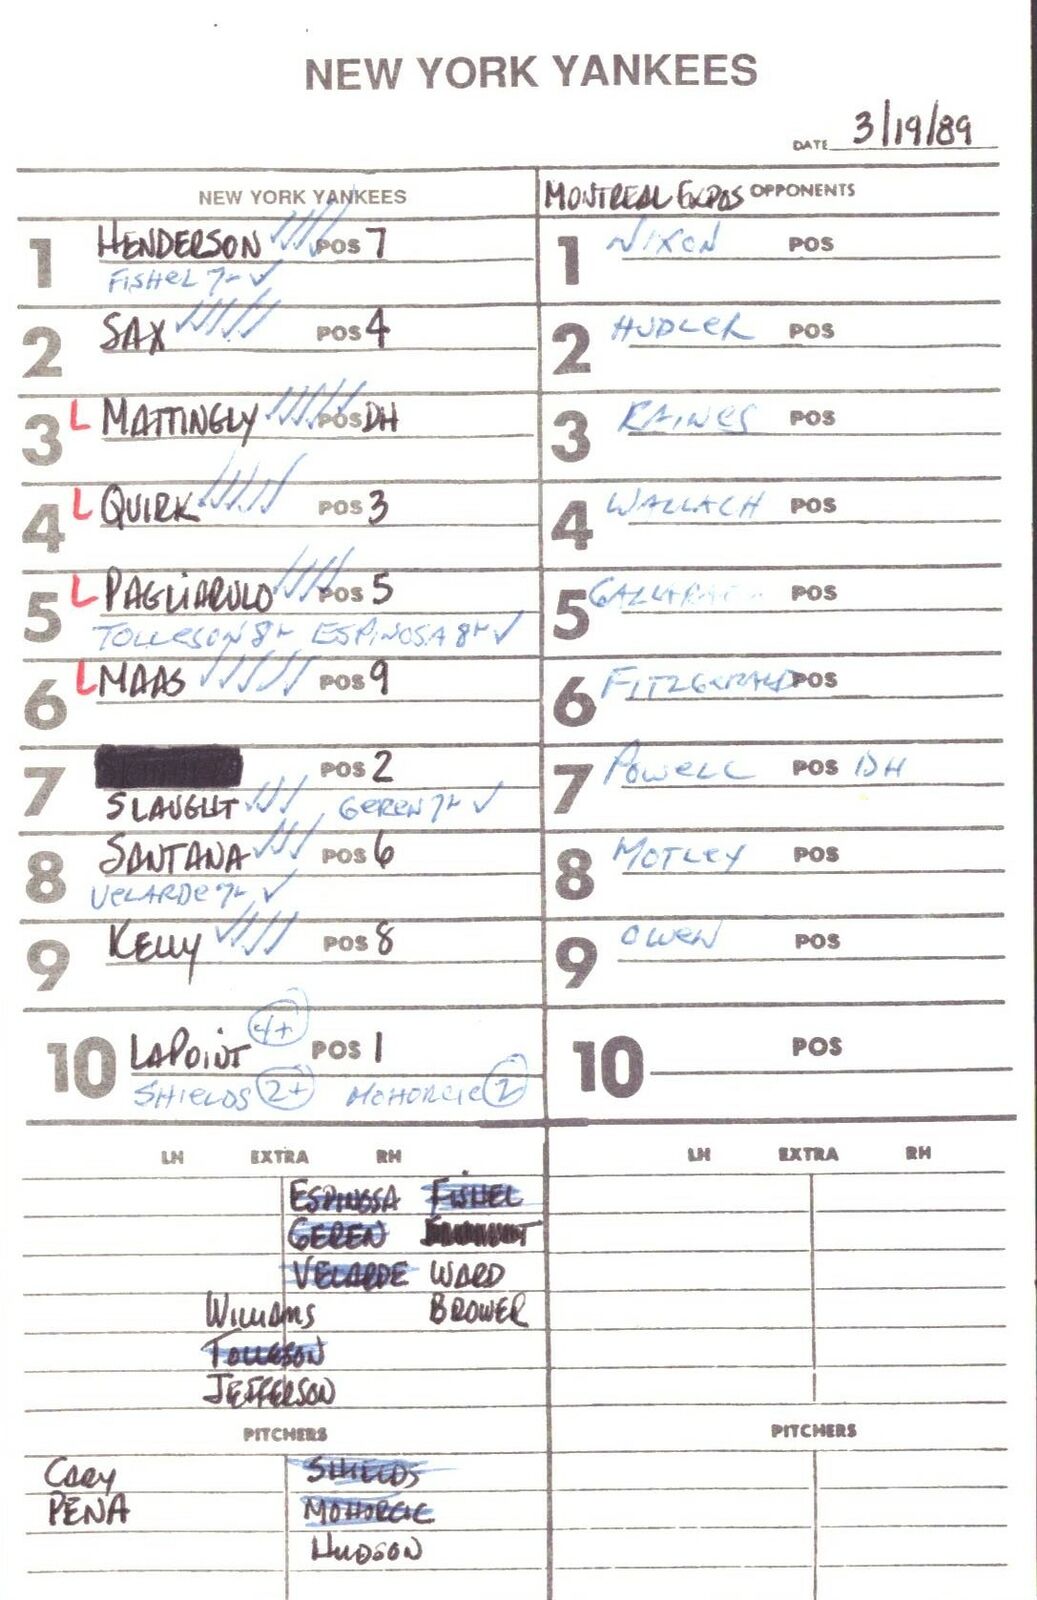 NEW YORK YANKEES
DATE 3/19/89
NEW YORK YANKEES
MONTREAL EXPOS OPPONENTS
1 HENDERSON POS 7
FISHEL 7-
1 NIXON POS
2 SAX POS 4
2 HUDLER POS
3 L MATTINGLY POS DH
3 RAINES POS
4 L QUIRK POS 3
4 WALLACH POS
5 L PAGLIARULO POS 5
TOLLESON 8- ESPINOSA 8-
5 POS
6 L MAAS POS 9
6 FITZGERALD POS
7 POS 2
SLAUGHT GEREN 7-
7 POWELL POS DH
8 SANTANA POS 6
VELARDE 7-
8 MOTLEY POS
9 KELLY POS 8
9 OWEN POS
10 LAPOINT 4+ POS 1
SHIELDS 2+ MOHORCIC 2
10 POS
LH EXTRA RH
LH EXTRA RH
ESPINOSA FISHEL
GEREN
VELARDE WARD
WILLIAMS BROWER
TOLLESON
JEFFERSON
PITCHERS
PITCHERS
CARY SHIELDS
PENA MOHORCIC
HUDSON